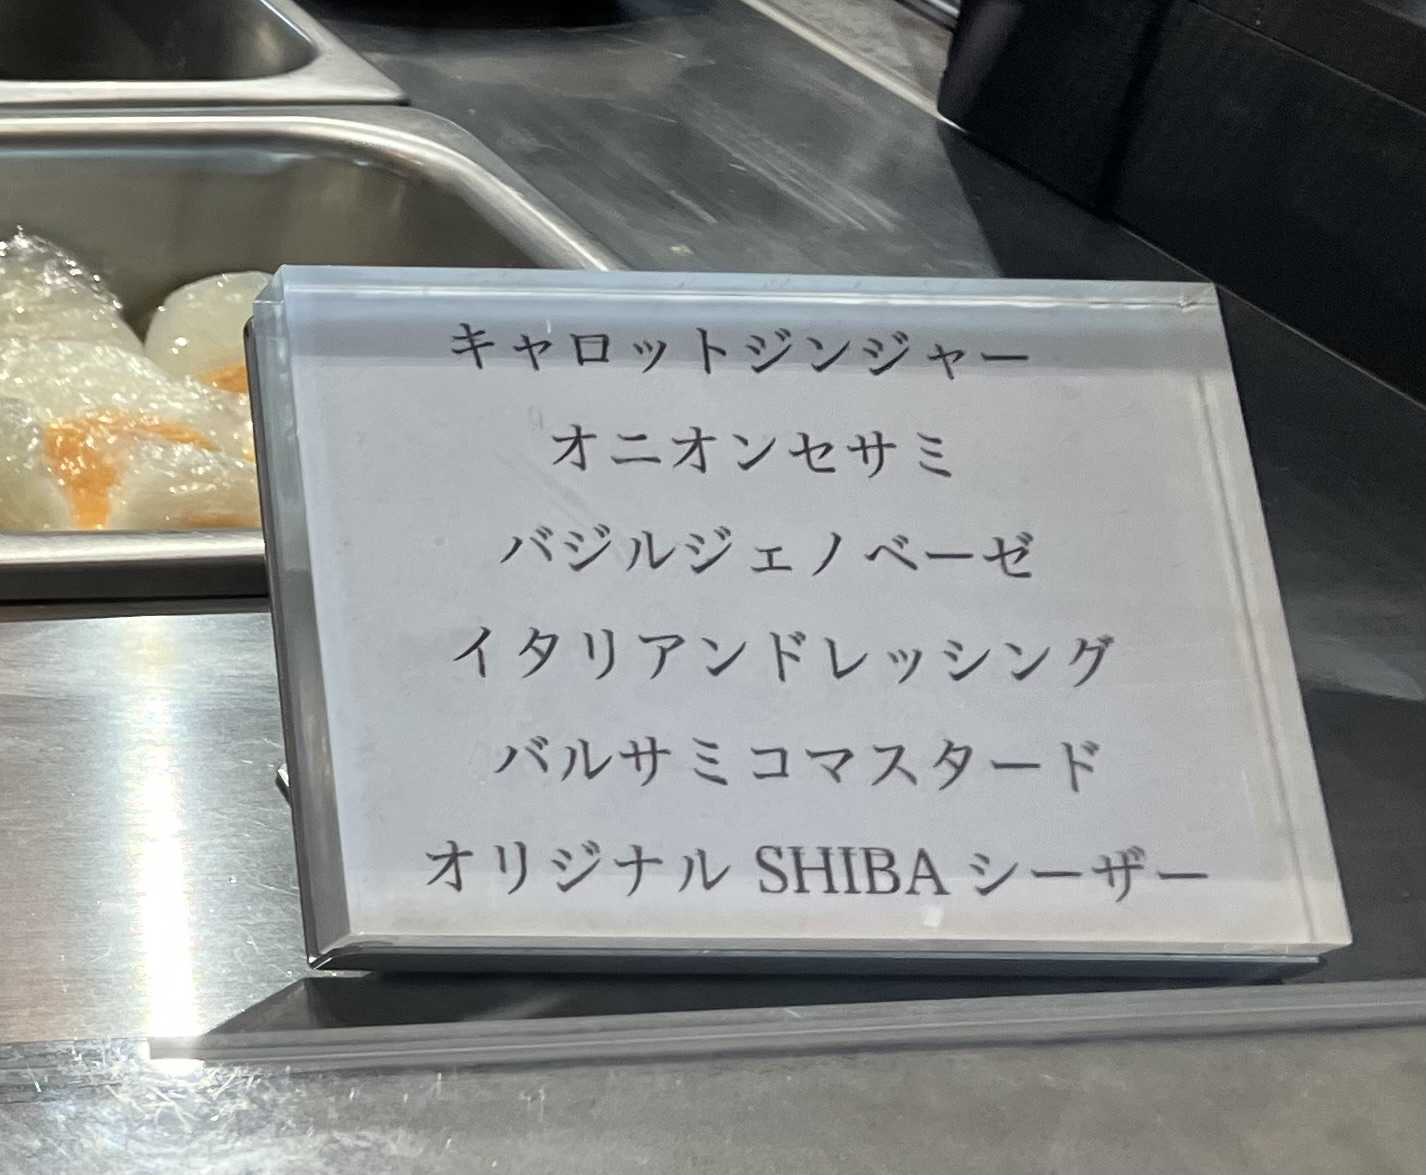 キャロットジンジャー
オニオンセサミ
バジルジェノベーゼ
イタリアンドレッシング
バルサミコマスタード
オリジナル SHIBA シーザー